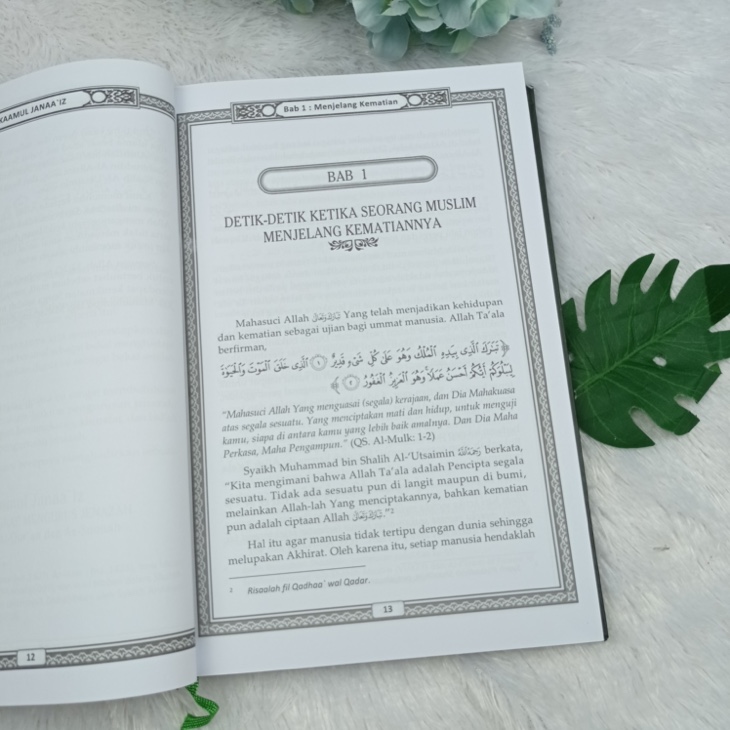 KAAMUL JANAA`IZ
12
Bab 1 : Menjelang Kematian
BAB 1
DETIK-DETIK KETIKA SEORANG MUSLIM
MENJELANG KEMATIANNYA
Mahasuci Allah تَبَارَكَ وَتَعَالَى Yang telah menjadikan kehidupan
dan kematian sebagai ujian bagi ummat manusia. Allah Ta'ala
berfirman,
﴿ تَبَٰرَكَ ٱلَّذِى بِيَدِهِ ٱلْمُلْكُ وَهُوَ عَلَىٰ كُلِّ شَىْءٍ قَدِيرٌ ١ ٱلَّذِى خَلَقَ ٱلْمَوْتَ وَٱلْحَيَوٰةَ
لِيَبْلُوَكُمْ أَيُّكُمْ أَحْسَنُ عَمَلًا وَهُوَ ٱلْعَزِيزُ ٱلْغَفُورُ ٢ ﴾
"Mahasuci Allah Yang menguasai (segala) kerajaan, dan Dia Mahakuasa
atas segala sesuatu. Yang menciptakan mati dan hidup, untuk menguji
kamu, siapa di antara kamu yang lebih baik amalnya. Dan Dia Maha
Perkasa, Maha Pengampun." (QS. Al-Mulk: 1-2)
Syaikh Muhammad bin Shalih Al-'Utsaimin رَحِمَهُ ٱللَّٰهُ berkata,
"Kita mengimani bahwa Allah Ta'ala adalah Pencipta segala
sesuatu. Tidak ada sesuatu pun di langit maupun di bumi,
melainkan Allah-lah Yang menciptakannya, bahkan kematian
pun adalah ciptaan Allah تَبَارَكَ وَتَعَالَى."²
Hal itu agar manusia tidak tertipu dengan dunia sehingga
melupakan Akhirat. Oleh karena itu, setiap manusia hendaklah
² Risaalah fil Qadhaa` wal Qadar.
13